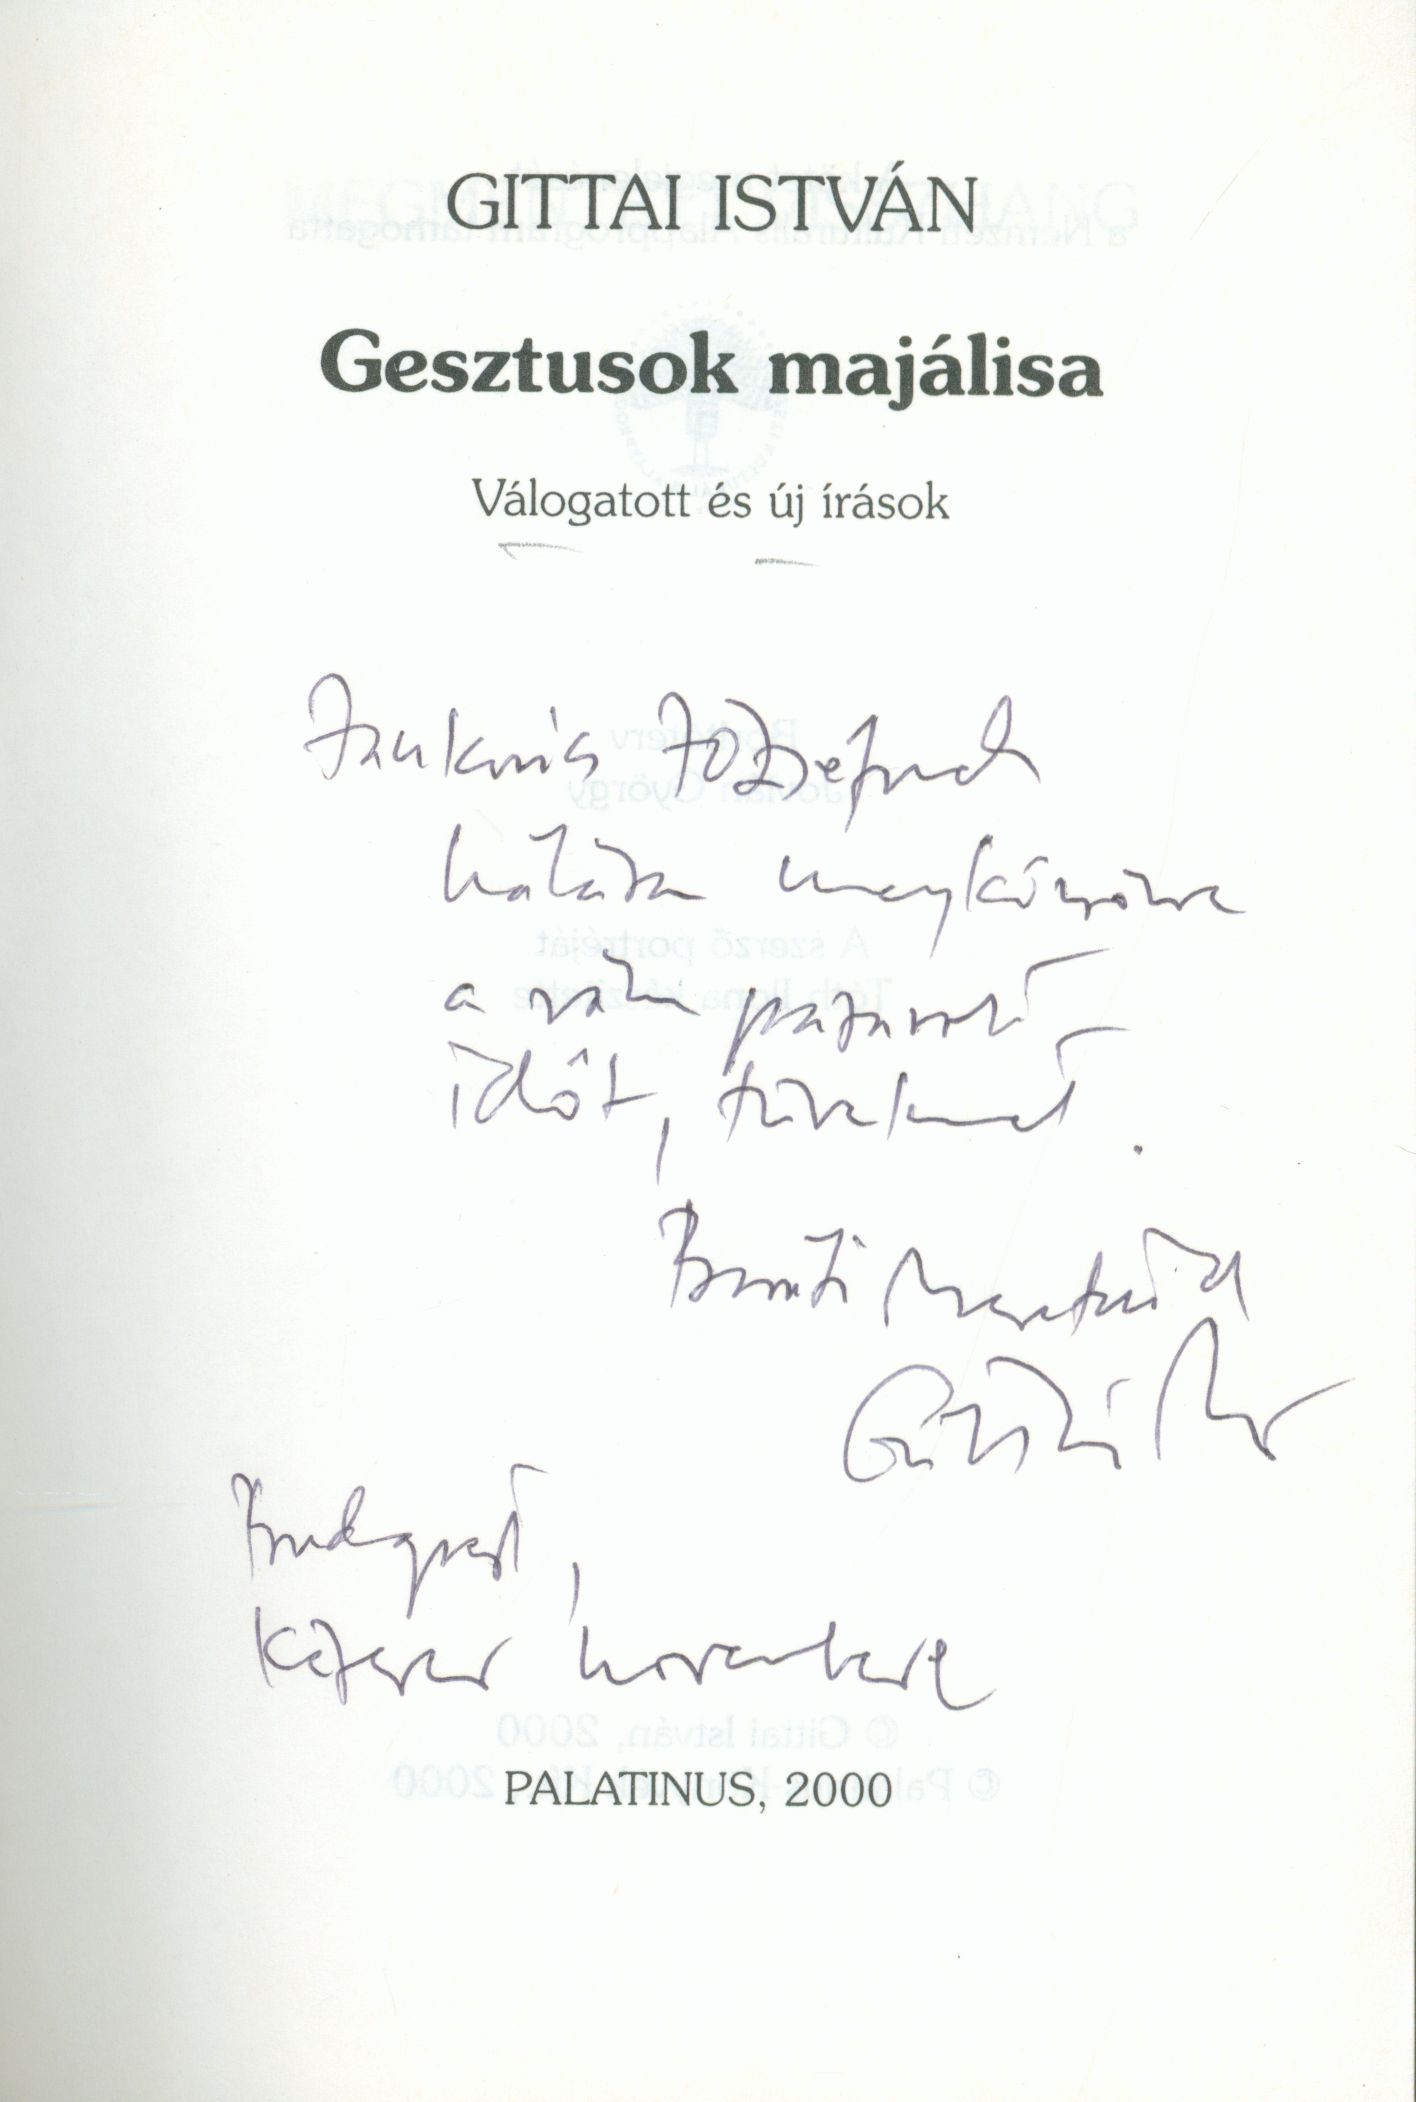 GITTAI ISTVÁN
Gesztusok majálisa
Válogatott és új írások
Jankovics Józsefnek
hálásan megköszönve
a rám pazarolt
időt, türelmet.
Baráti szeretettel
Gittai István
Budapest,
Kétezer novembere
PALATINUS, 2000